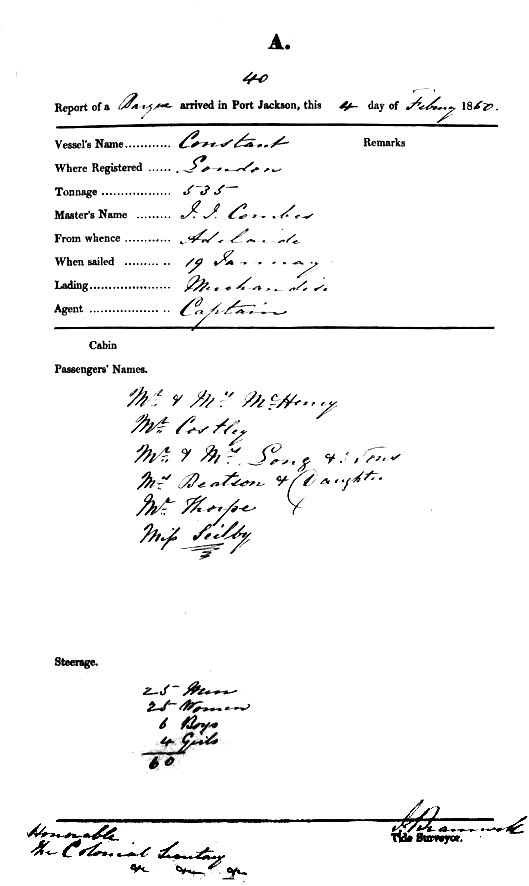 A.
40
Report of a Barque arrived in Port Jackson, this 4 day of Febuy 1860.
Vessel's Name............ Constant Remarks
Where Registered ...... London
Tonnage .................. 535
Master's Name ......... J. J. Combes
From whence ............ Adelaide
When sailed ......... .. 19 January
Lading..................... Merchandise
Agent ................. .. Captain
Cabin
Passengers' Names.
Mr. & Mrs. McHenry
Mr. Costley
Mr. & Mrs. Long & Sons
Mrs. Beatson & Daughter
Mr. Thorpe
Miss Seilby
Steerage.
25 Men
25 Women
6 Boys
4 Girls
60
Tide Surveyor.
Honorable
The Colonial Secretary
&c &c &c